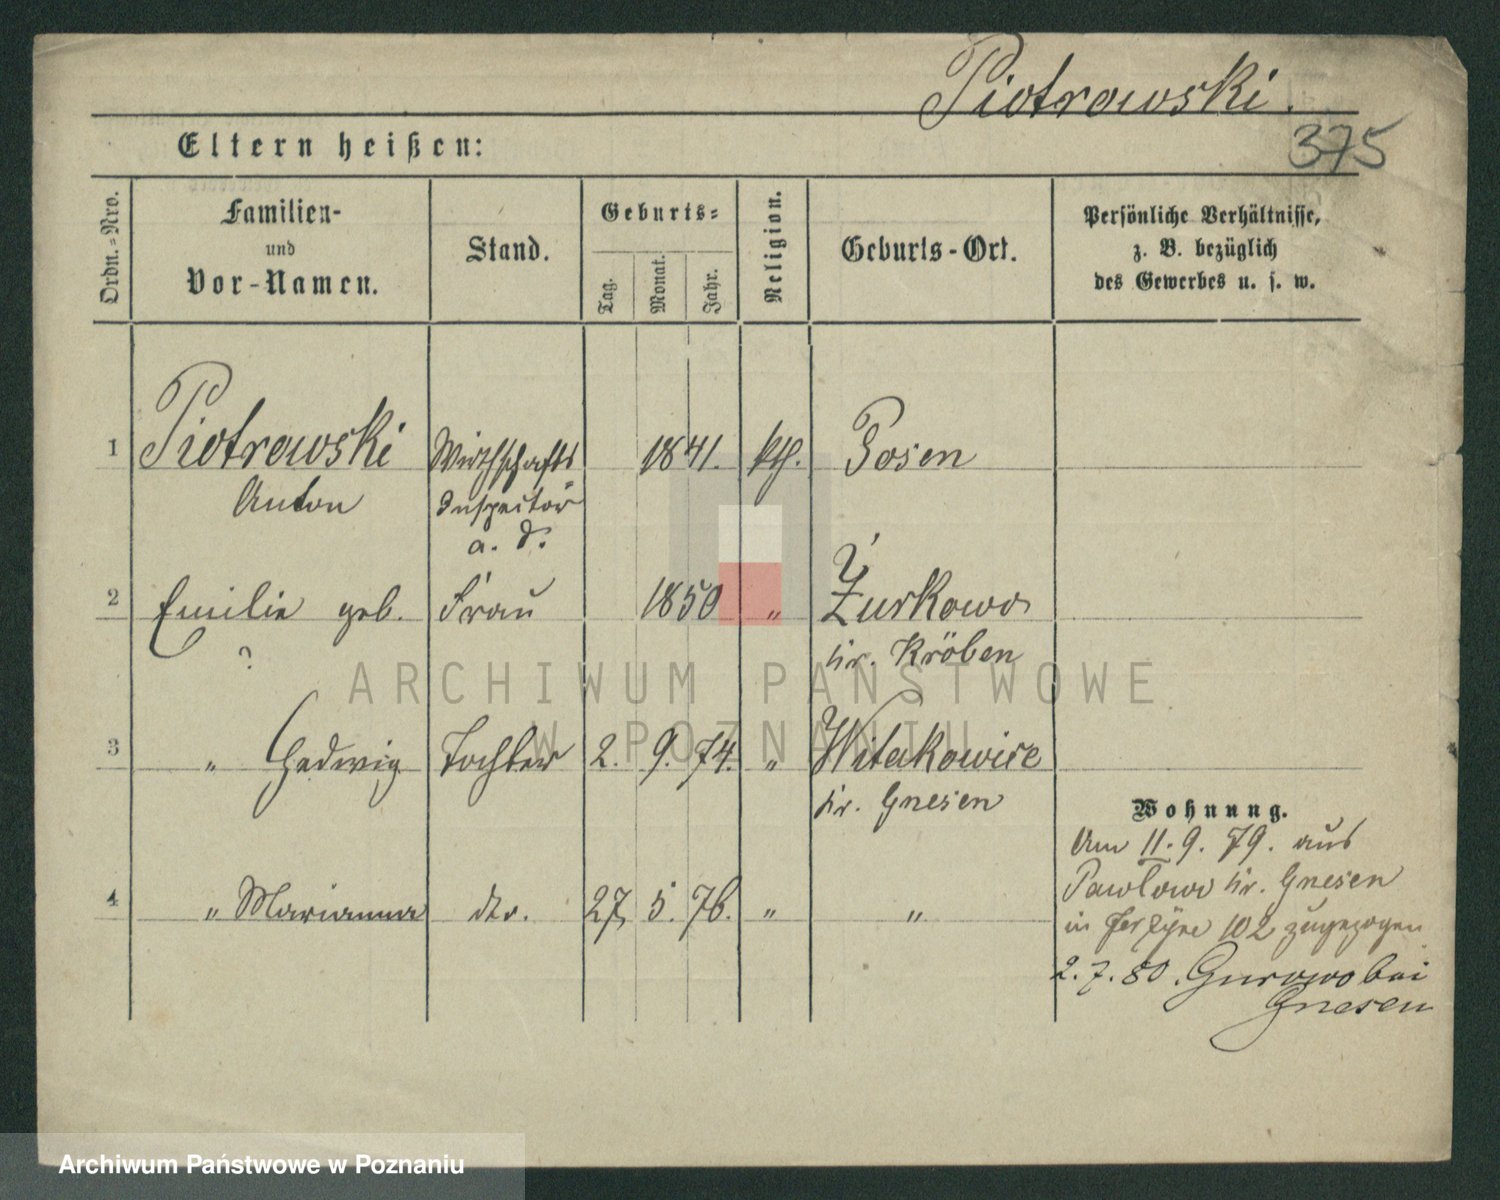 Piotrowski.
375
Eltern heißen:
Ordn.-Nro.
Familien-
und
Vor-Namen.
Stand.
Geburts-
Tag.
Monat.
Jahr.
Religion.
Geburts-Ort.
Persönliche Verhältnisse,
z. B. bezüglich
des Gewerbes u. s. w.
1 Piotrowski Wirthschafts 1841. kth. Posen
Anton Inspector
a. D.
2 Emilie geb. Frau 1850 " Żurkowo
? Kr. Kröben
3 " Hedwig Tochter 2. 9. 74. " Witakowice
Kr. Gnesen
4 " Marianna dto. 27. 5. 76. " "
Wohnung.
Am 11. 9. 79. aus
Pawłowo Kr. Gnesen
in 102 zugezogen
2. 7. 80. Gurowo bei
Gnesen
ARCHIWUM PAŃSTWOWE
W POZNANIU
Archiwum Państwowe w Poznaniu